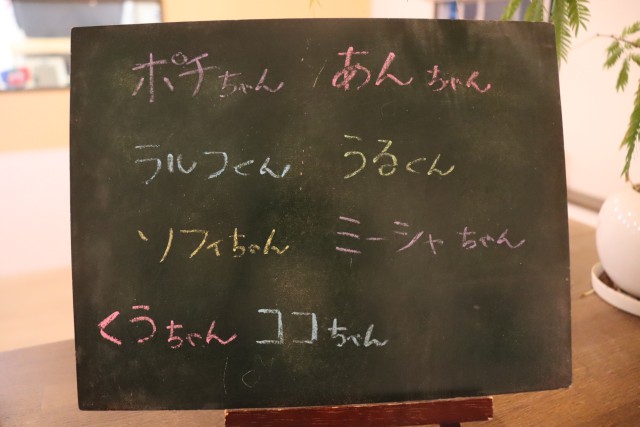 ポチちゃん あんちゃん
ラルフくん うるくん
ソフィちゃん ミーシャちゃん
くうちゃん ココちゃん